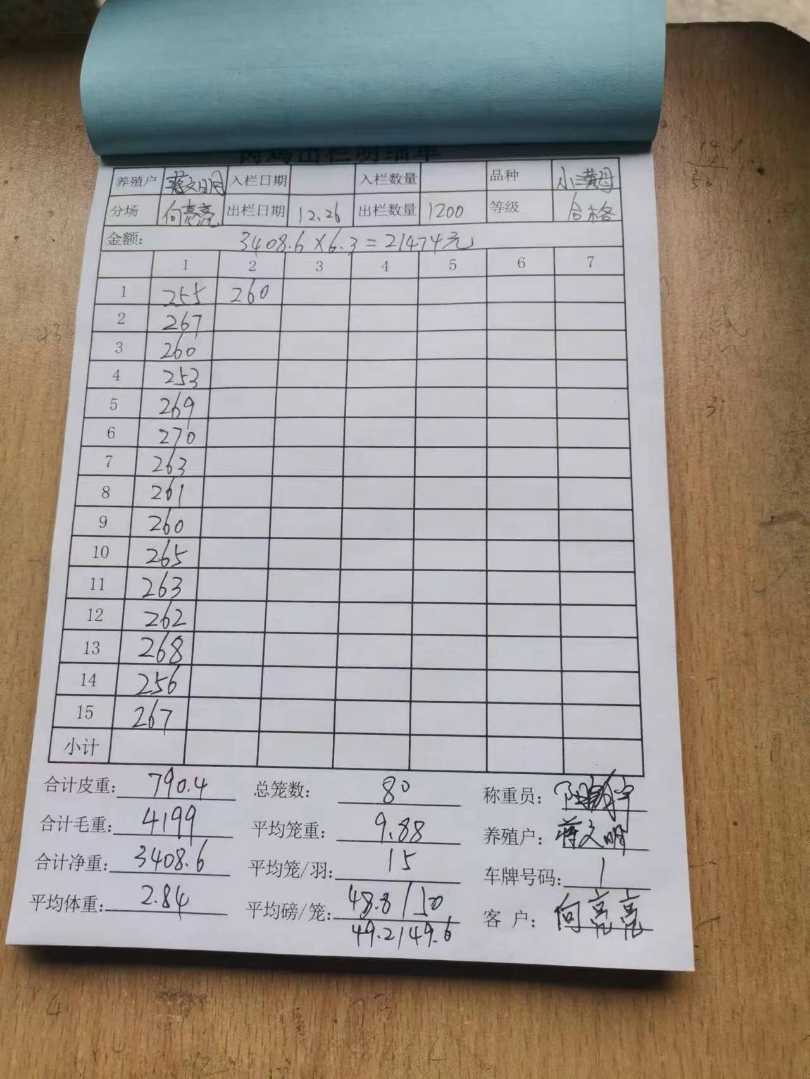 养殖户 蒋文明 入栏日期 入栏数量 品种
分场 向亮亮 出栏日期 12.26 出栏数量 1200 等级 合格
金额: 3408.6×6.3=21474元
1 2 3 4 5 6 7
1 255 260
2 267
3 260
4 253
5 269
6 270
7 263
8 261
9 260
10 265
11 263
12 262
13 268
14 256
15 267
小计
合计皮重: 790.4 总笼数: 80 称重员:
合计毛重: 4199 平均笼重: 9.88 养殖户: 蒋文明
合计净重: 3408.6 平均笼/羽: 15 车牌号码: 1
平均体重: 2.84 平均磅/笼: 48.8/50 客 户: 向亮亮
49.2/49.6